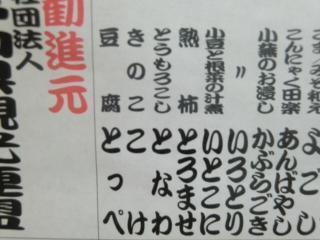 ごまみそ和え よごし
こんにゃく田楽 あんばやし
小蕪のお浸し かぶらごき
〃 いろとり
小豆と根菜の汁煮 いとこに
熟柿 とろませ
とうもろこし となわ
きのこ こけ
豆腐 とっぺ
勧進元
社団法人
県観光連盟